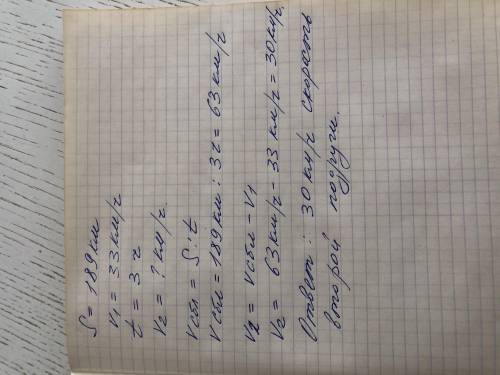 S = 189 км
v1 = 33 км/г
t = 3 г
v2 = ? км/г.
vсбл = S : t
vсбл = 189 км : 3 г = 63 км/г
v2 = vсбл - v1
v2 = 63 км/г - 33 км/г = 30 км/г.
Ответ : 30 км/г скорость
второй подруги.